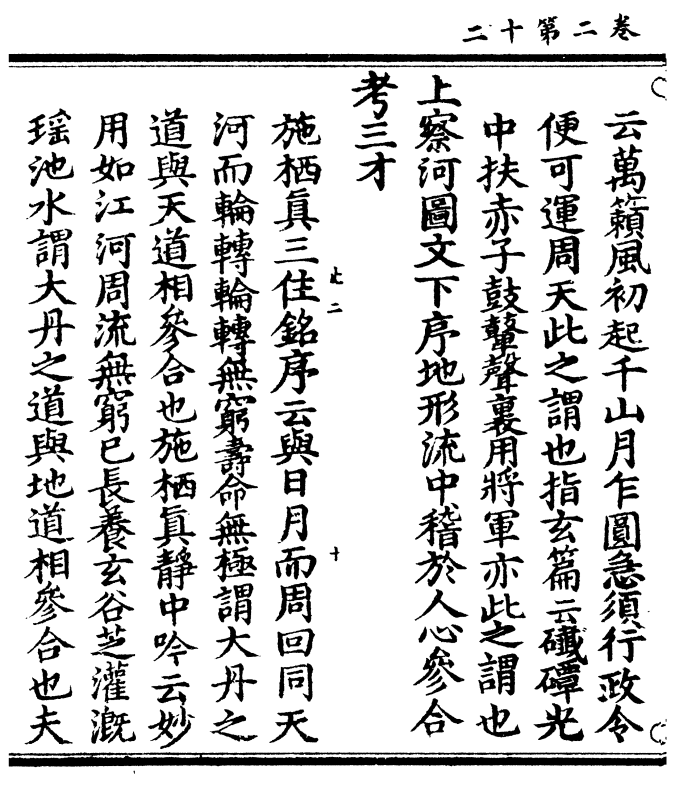 卷二第十二
云萬籟風初起千山月乍圓急須行政令
便可運周天此之謂也指玄篇云礮磹光
中扶赤子鼓鼙聲裏用將軍亦此之謂也
上察河圖文下序地形流中稽於人心參合
考三才
施栖真三住銘序云與日月而周回同天
河而輪轉輪轉無窮壽命無極謂大丹之
道與天道相參合也施栖真靜中吟云妙
用如江河周流無窮已長養玄谷芝灌溉
瑶池水謂大丹之道與地道相參合也夫